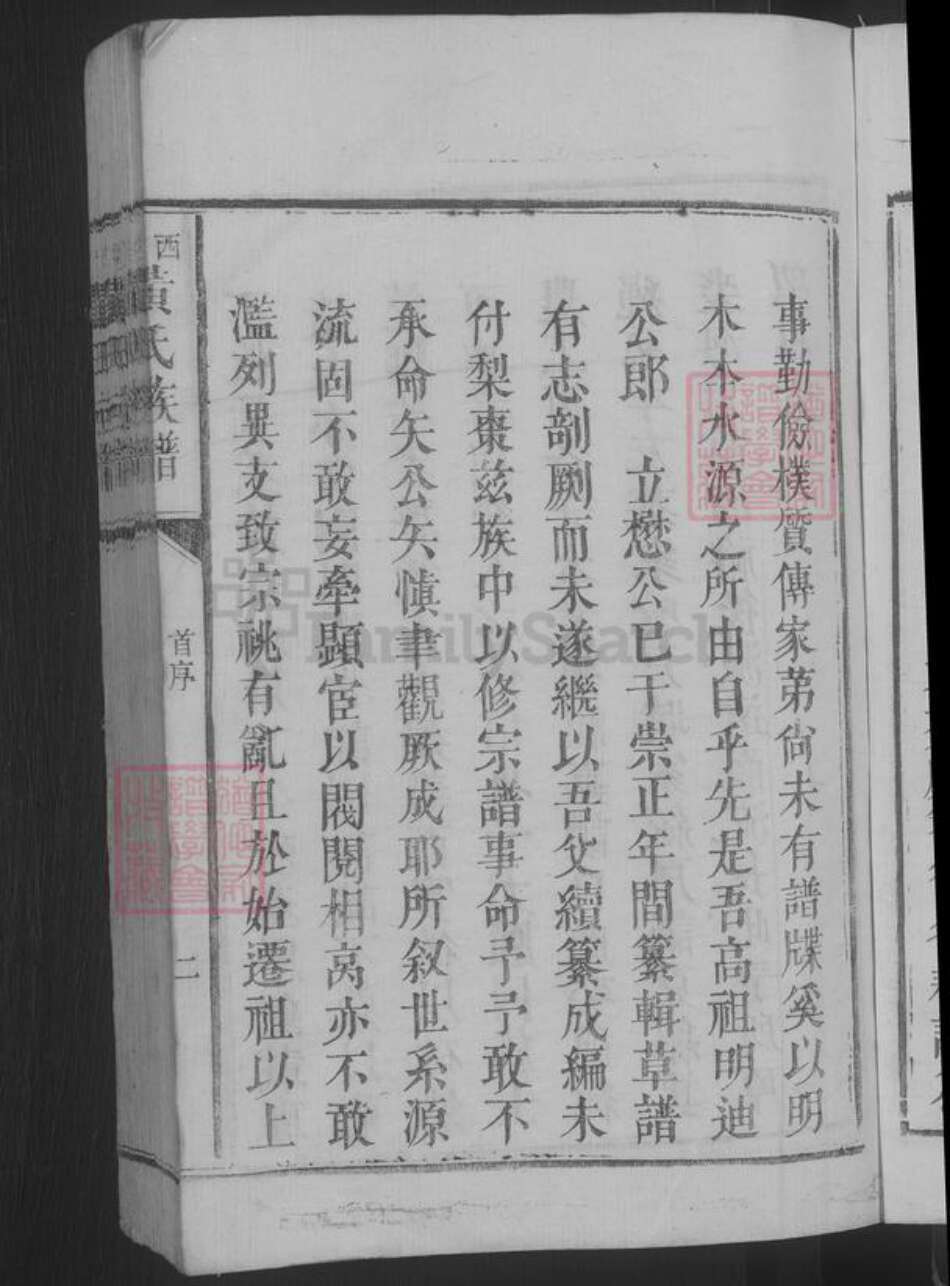 事勤儉樸質傳家苐尙未有譜牒奚以明
木本水源之所由自乎先是吾高祖明迪
公郎　立懋公已于崇正年間纂輯草譜
有志剞劂而未遂繼以吾父續纂成編未
付梨棗茲族中以修宗譜事命予予敢不
承命矢公矢愼聿觀厥成耶所叙世系源
流固不敢妄牽顯宦以閥閱相高亦不敢
濫列異支致宗祧有亂且於始遷祖以上
西黄氏族譜
首序
二
FamilySearch